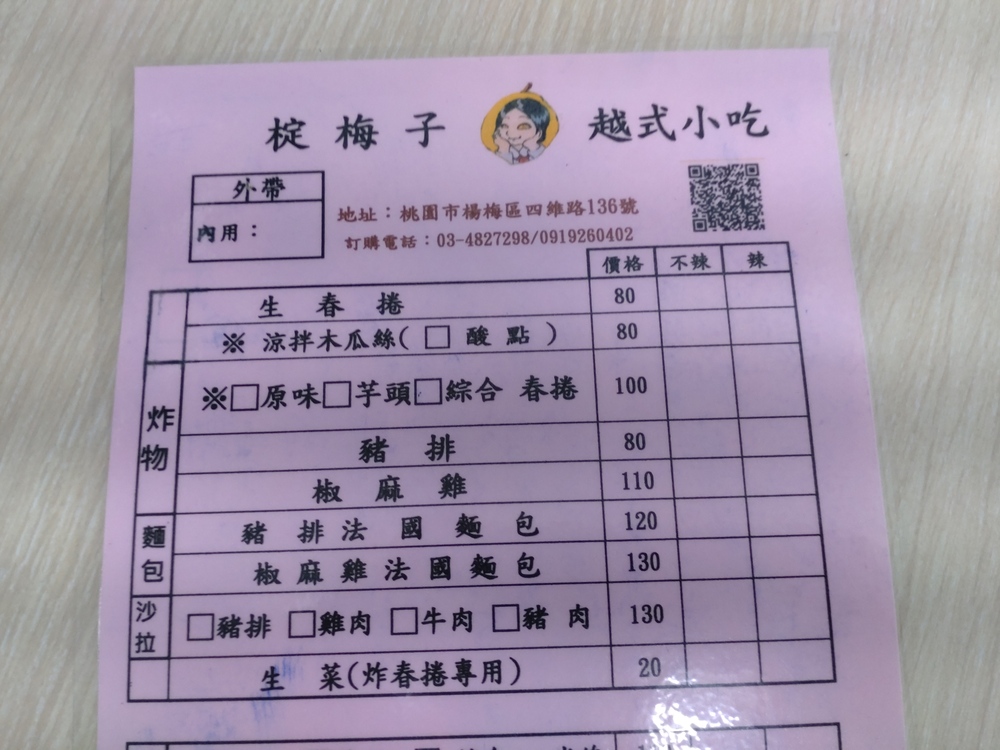 椗梅子 越式小吃
外帶
內用：
地址：桃園市楊梅區四維路136號
訂購電話：03-4827298/0919260402
價格 不辣 辣
生春捲 80
※ 涼拌木瓜絲(□ 酸點) 80
炸物
※□原味□芋頭□綜合 春捲 100
豬排 80
椒麻雞 110
麵包
豬排法國麵包 120
椒麻雞法國麵包 130
沙拉
□豬排 □雞肉 □牛肉 □豬肉 130
生菜(炸春捲專用) 20